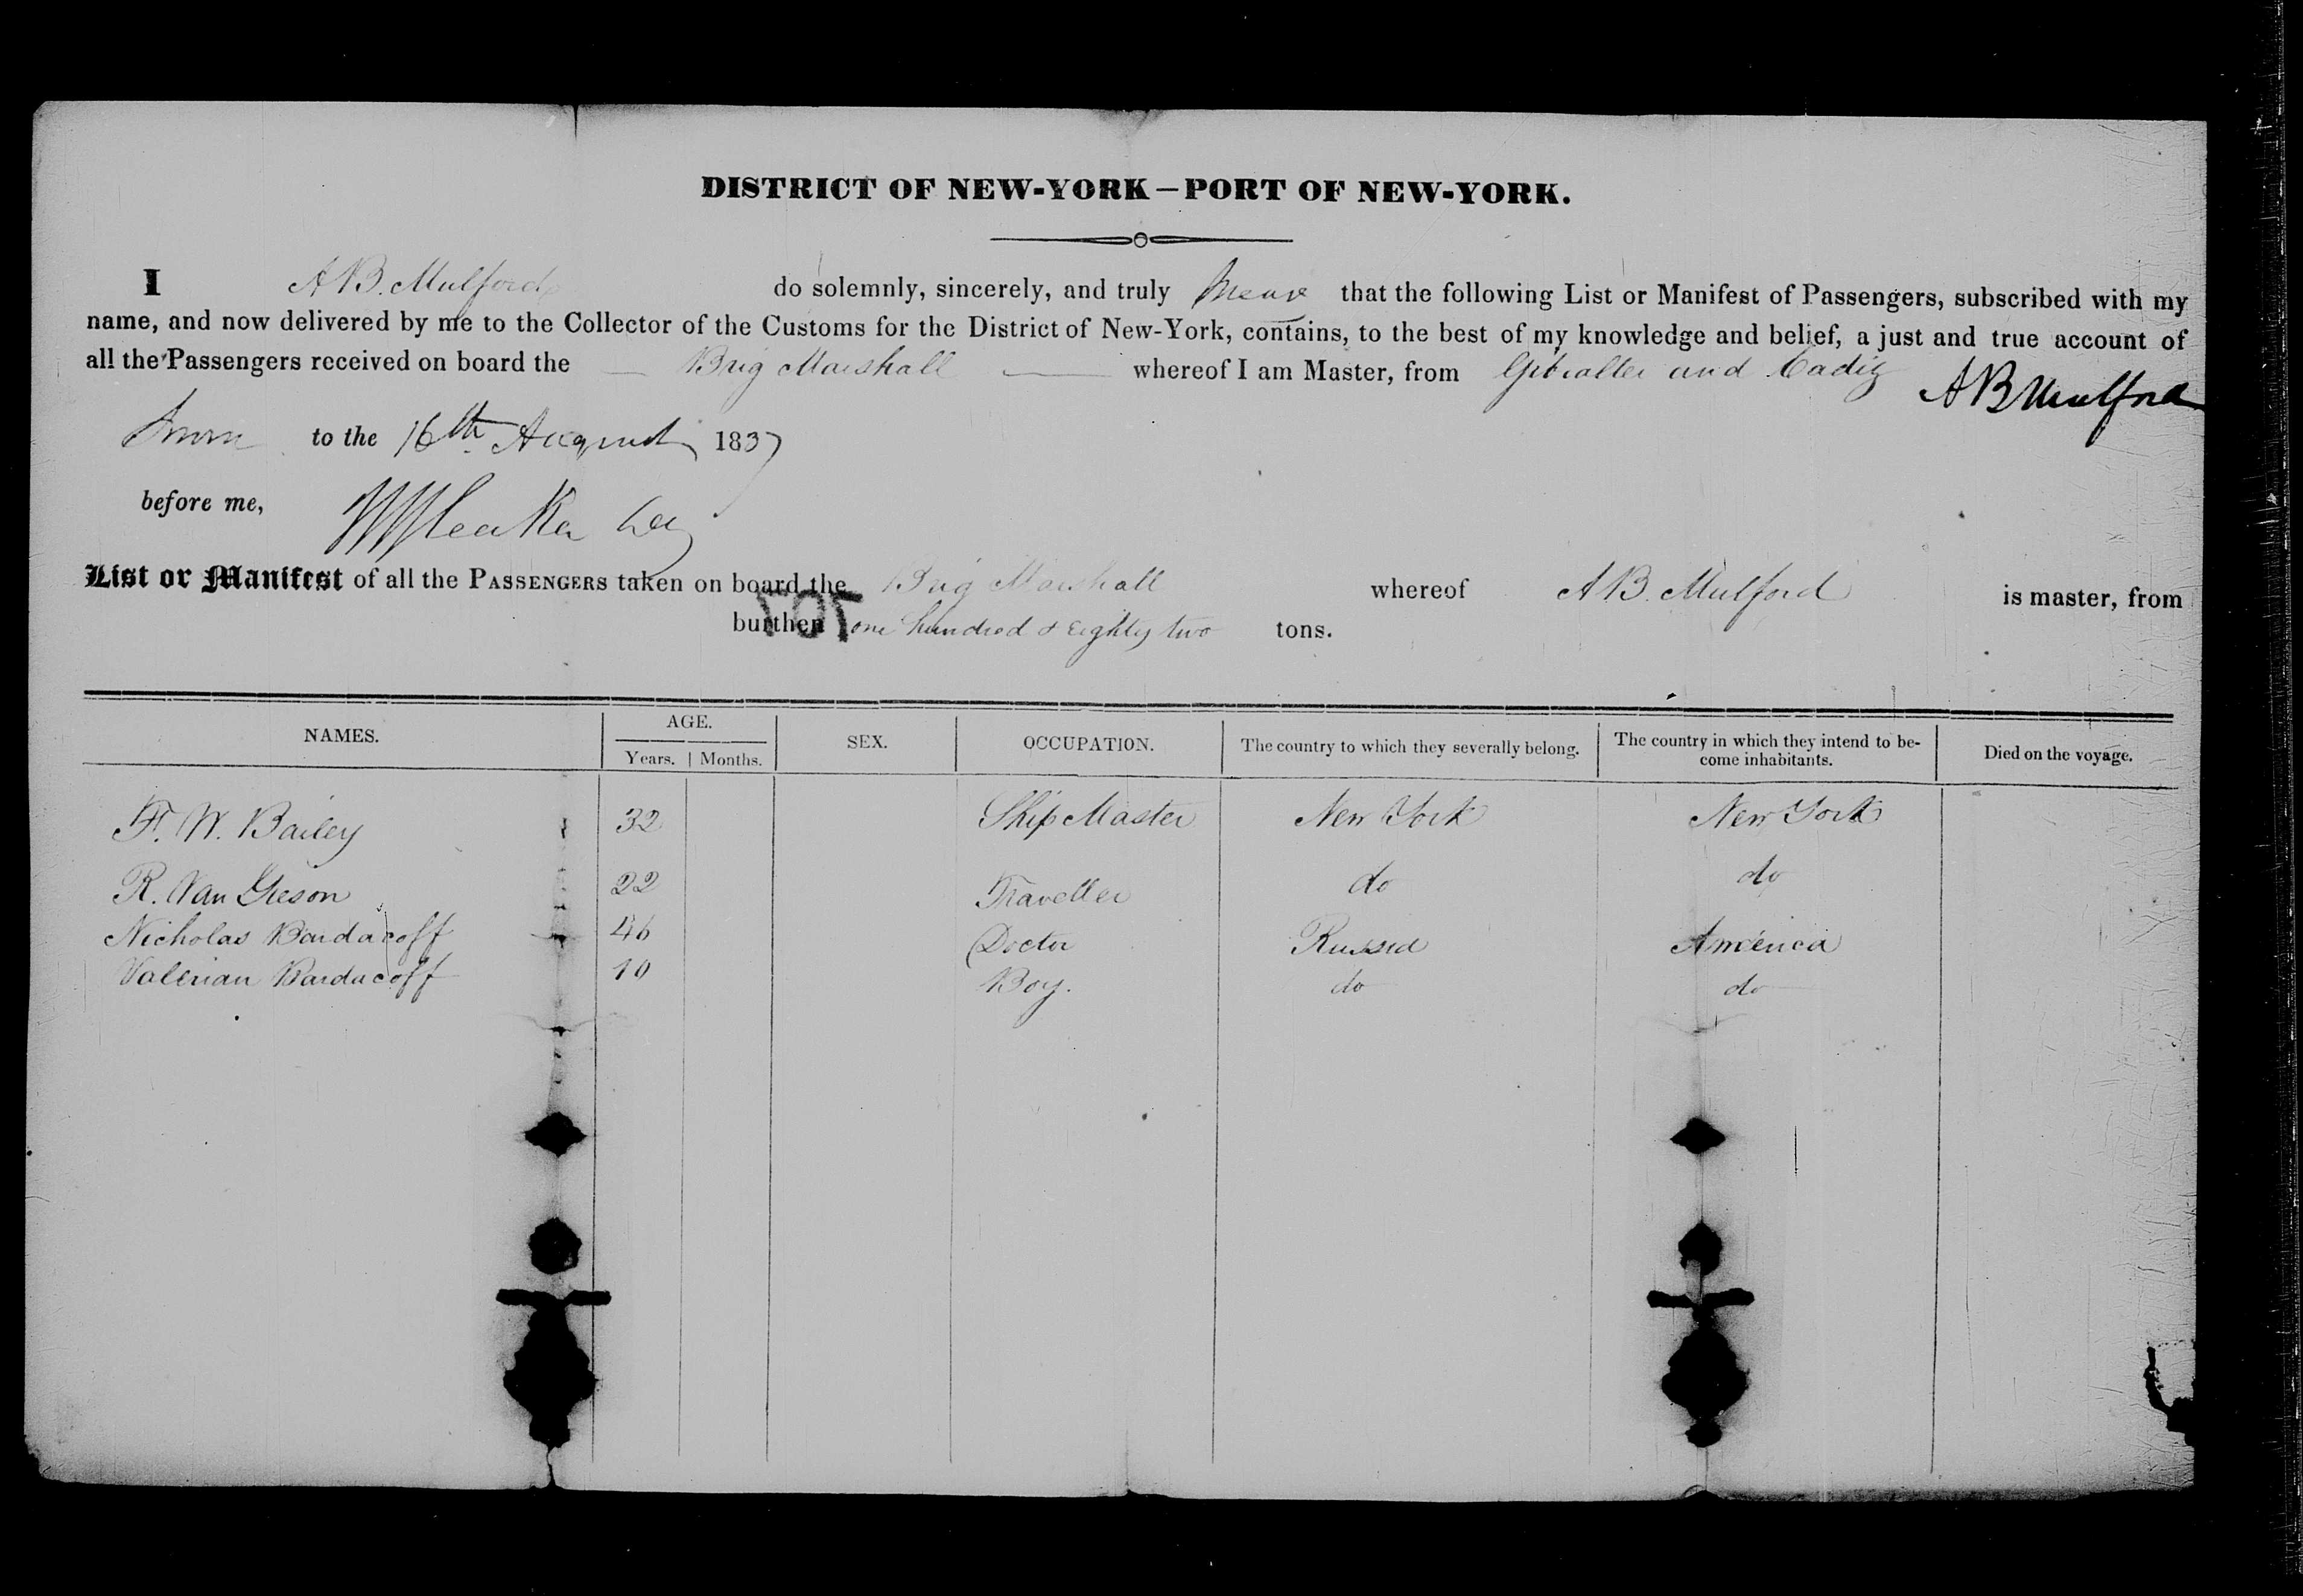 DISTRICT OF NEW-YORK—PORT OF NEW-YORK.
I A B. Mulford do solemnly, sincerely, and truly swear that the following List or Manifest of Passengers, subscribed with my
name, and now delivered by me to the Collector of the Customs for the District of New-York, contains, to the best of my knowledge and belief, a just and true account of
all the Passengers received on board the Brig Marshall whereof I am Master, from Gibralter and Cadiz
A B Mulford
Sworn to the 16th August 1837
before me,
List or Manifest of all the PASSENGERS taken on board the Brig Marshall whereof A B. Mulford is master, from
burthen one hundred & Eighty two tons.
NAMES. AGE. SEX. OCCUPATION. The country to which they severally belong. The country in which they intend to be-come inhabitants. Died on the voyage.
Years. Months.
F. W. Bailey 32 Ship Master New York New York
R. Van Gieson 22 Traveller do do
Nicholas Bardacoff 46 Doctor Russia America
Valerian Bardacoff 10 Boy. do do